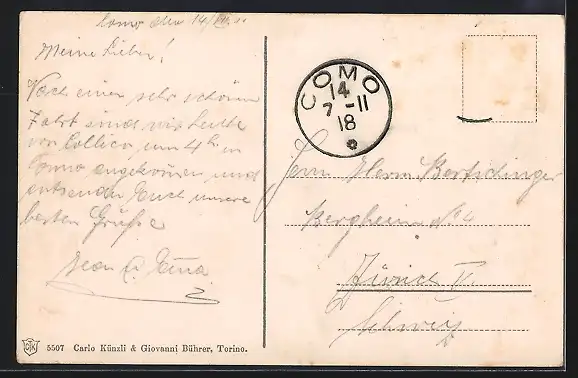 Como den 14/VII. 11
Meine Lieben!
Nach einer sehr schönen
Fahrt sind wir heute
von Collico, um 4 h in
Como angekommen und
entsenden Euch unsere
besten Grüsse
Jean &
COMO
14
7-11
18
Herrn Bertschinger
Bergheim No 4
Zürich V.
Schweiz
5507 Carlo Künzli & Giovanni Bührer, Torino.